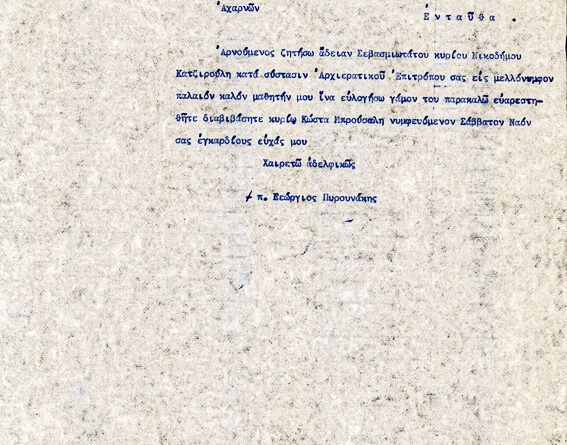 Ἀχαρνῶν
Ἐνταῦθα .
Ἀρνούμενος ζητήσω ἄδειαν Σεβασμιωτάτου κυρίου Νικοδήμου
Κατζιρούλη κατά σύστασιν Ἀρχιερατικοῦ Ἐπιτρόπου σας εἰς μελλόνυμφον
παλαιόν καλόν μαθητήν μου ἵνα εὐλογήσω γάμον του παρακαλῶ εὐαρεστη-
θῆτε διαβιβάσητε κυρίῳ Κώστα Μπρούσαλη νυμφευόμενον Σάββατον Ναόν
σας ἐγκαρδίους εὐχάς μου
Χαιρετῶ ἀδελφικῶς
π. Γεώργιος Πυρουνάκης